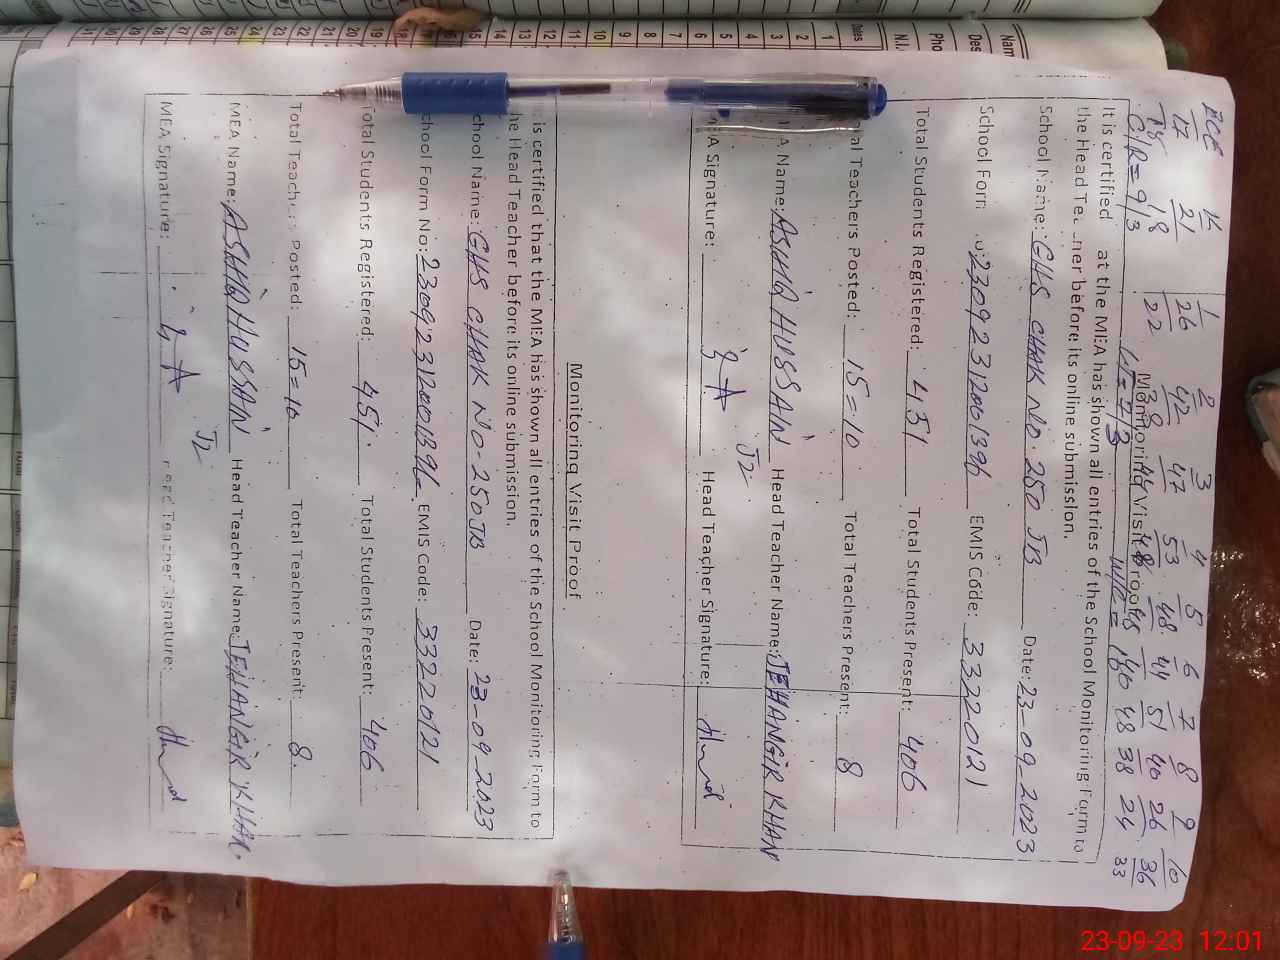 ECE K 1 2 3 4 5 6 7 8 9 10
17 21 26 42 47 53 48 44 51 40 26 36
18 18 22 38 44 48 48 140 48 38 24 33
C/R= 9/3 LT= 7/3 W/R=
Monitoring Visit Proof
It is certified at the MEA has shown all entries of the School Monitoring Form to
the Head Tea ner before its online submission.
School Name: GHS CHAK NO. 250 JB Date: 23-09-2023
School Form 23092312001396 EMIS Code: 33220121
Total Students Registered: 451 Total Students Present: 406
al Teachers Posted: 15=10 Total Teachers Present: 8
A Name: ASHIQ HUSSAIN Head Teacher Name: JEHANGIR KHAN
J2
A Signature: Head Teacher Signature:
Monitoring Visit Proof
is certified that the MEA has shown all entries of the School Monitoring Form to
he Head Teacher before its online submission.
chool Name: GHS CHAK NO-250JB Date: 23-09-2023
chool Form No: 23092312001396 EMIS Code: 33220121
Total Students Registered: 451 Total Students Present: 406
Total Teachers Posted: 15=10 Total Teachers Present: 8.
MEA Name: ASHIQ HUSSAIN Head Teacher Name: JEHANGIR KHAN.
J2
MEA Signature: Head Teacher Signature:
Nam
Des
Pho
N.I.
Dates 1 2 3 4 5 6 7 8 9 10 11 12 13 14 15 16 17 18 19 20 21 22 23 24 25 26 27 28 29 30 31
23-09-23 12:01